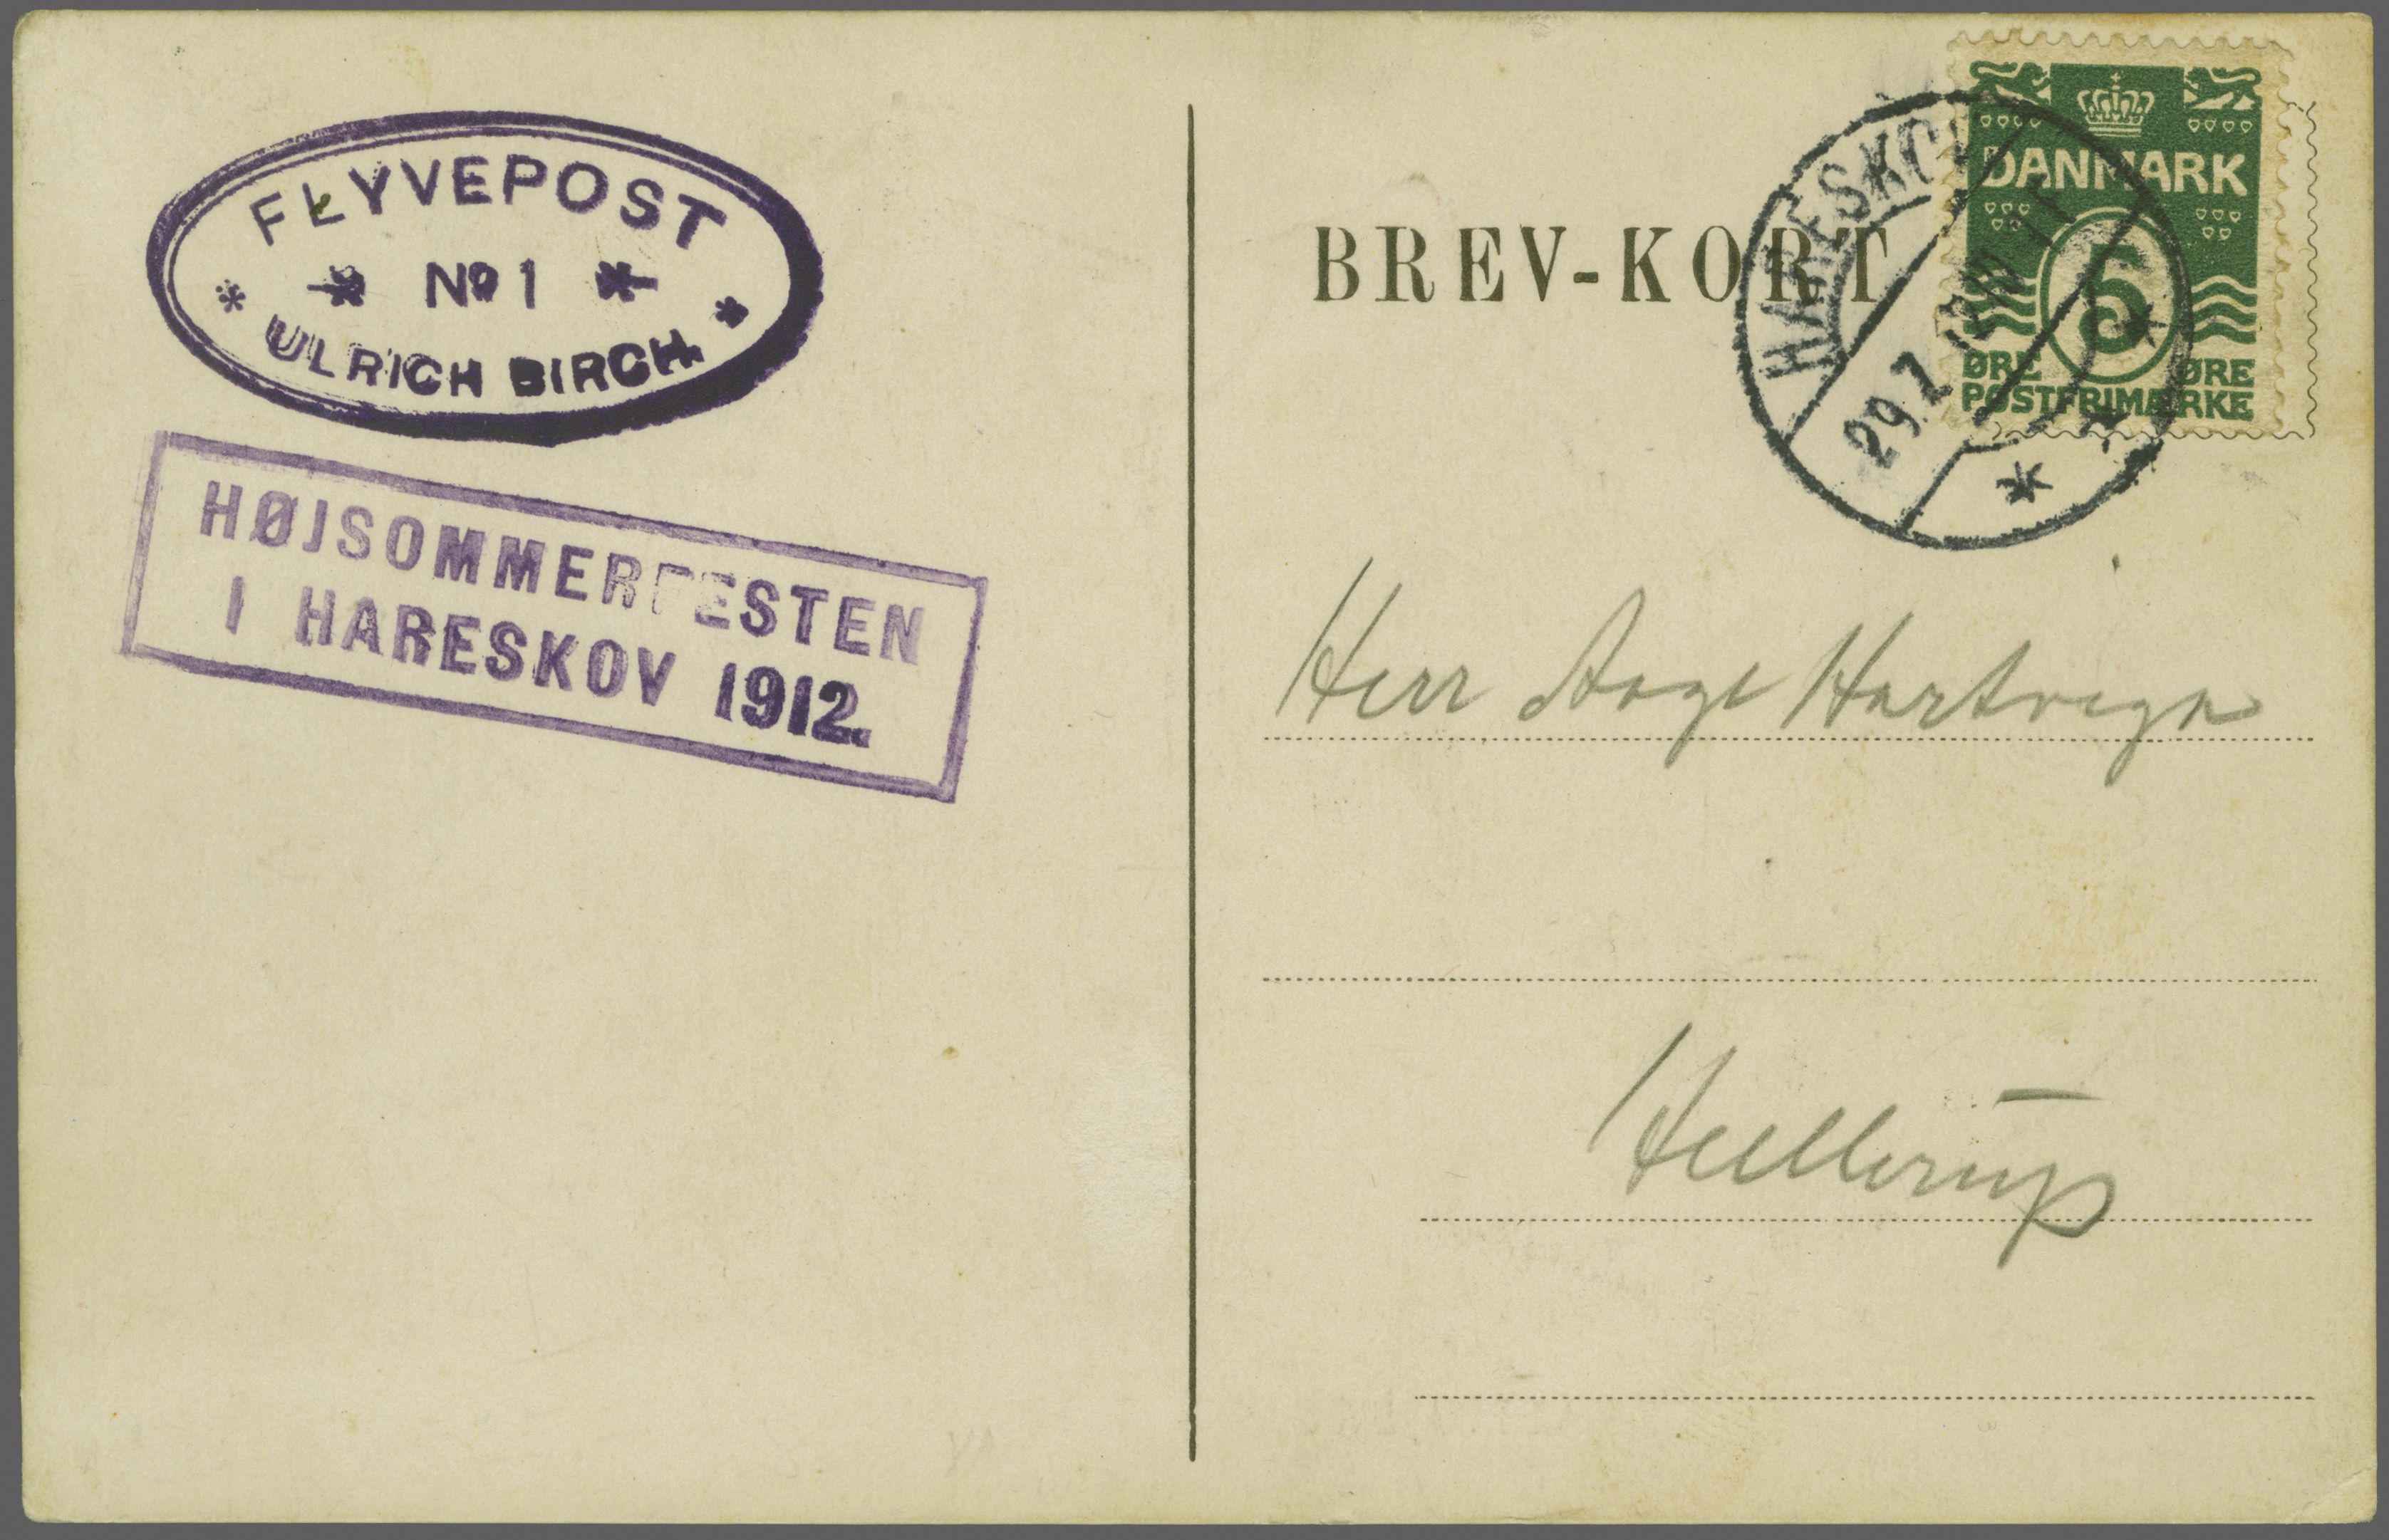 FLYVEPOST
No 1
ULRICH BIRCH.
HØJSOMMERFESTEN
I HARESKOV 1912.
BREV-KORT
HARESKOV
29.7
DANMARK
5
ØRE ØRE
POSTFRIMÆRKE
Herr Aage Hartvign
Hellerup